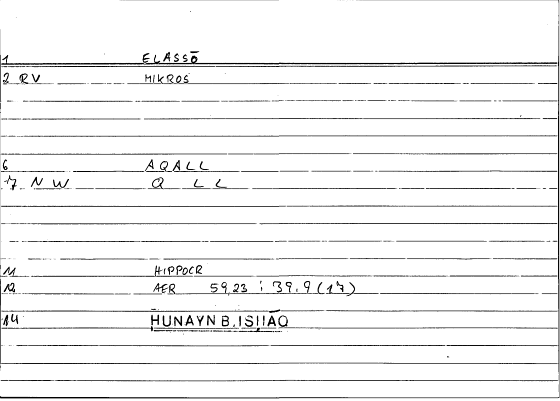 1 ELASSŌ
2 RV MIKROS
6 AQALL
7 NW Q L L
11 HIPPOCR
12 AER 59,23 ; 39.9 (17)
14 ḤUNAYN B. ISḤĀQ